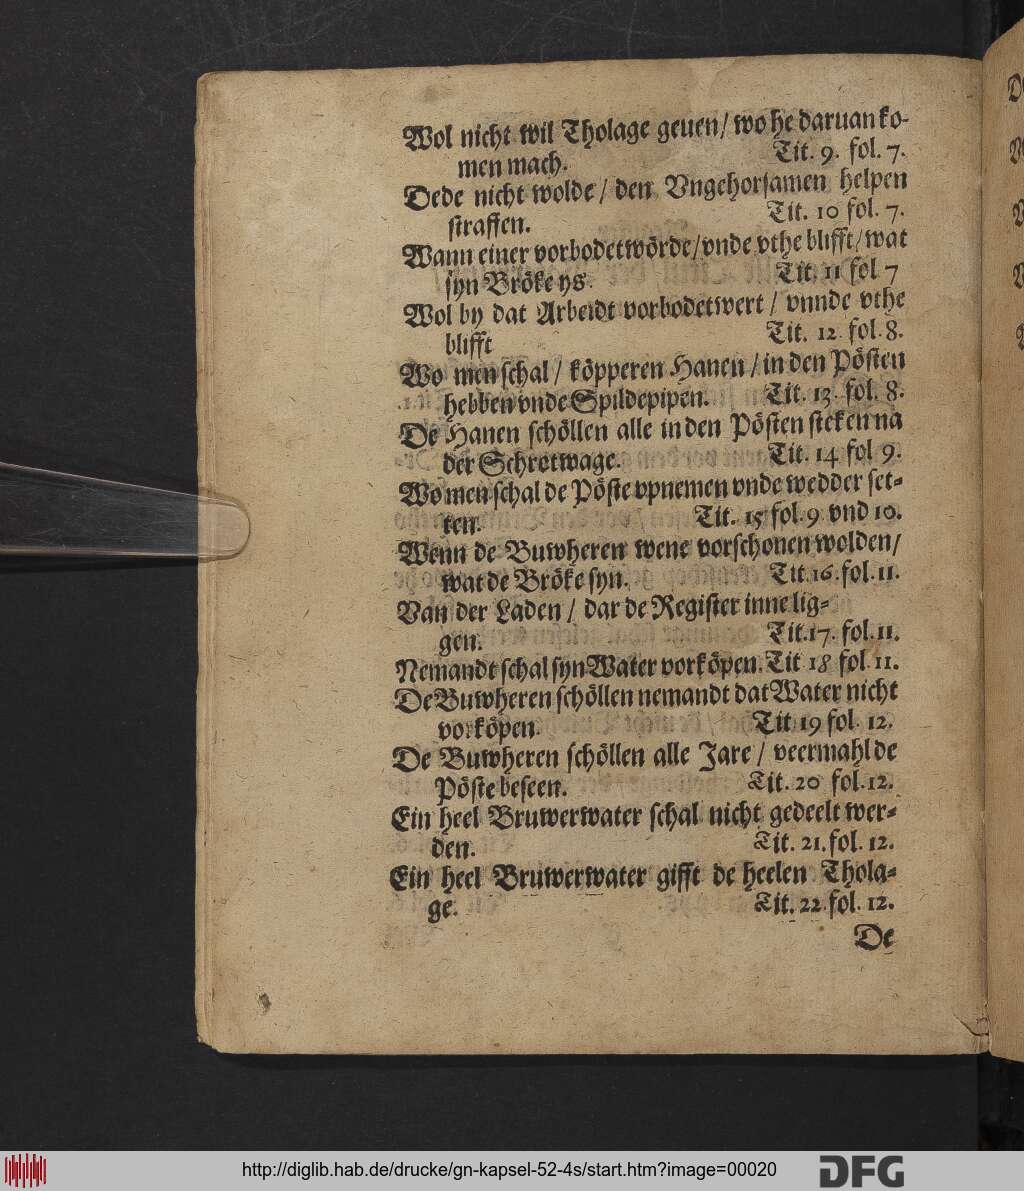 Wol nicht wil Tholage geuen / wo he daruan ko-
men mach. Tit. 9. fol. 7.
Dede nicht wolde / den Vngehorsamen helpen
straffen. Tit. 10 fol. 7.
Wann einer vorbodet wörde / vnde vthe blifft / wat
syn Bröke ys. Tit. 11 fol 7
Wol by dat Arbeidt vorbodet wert / vnnde vthe
blifft Tit. 12. fol. 8.
Wo men schal / köpperen Hanen / in den Pösten
hebben vnde Spildepipen. Tit. 13. fol. 8.
De Hanen schöllen alle in den Pösten steken na
der Schrotwage. Tit. 14 fol 9.
Wo men schal de Pöste vpnemen vnde wedder set-
ten. Tit. 15 fol. 9 vnd 10.
Wenn de Buwheren wene vorschonen wolden /
wat de Bröke syn. Tit. 16. fol. 11.
Van der Laden / dar de Register inne lig-
gen. Tit. 17. fol. 11.
Nemandt schal syn Water vorköpen. Tit 18 fol 11.
De Buwheren schöllen nemandt dat Water nicht
vorköpen. Tit 19 fol. 12.
De Buwheren schöllen alle Jare / veermahl de
Pöste beseen. Tit. 20 fol. 12.
Ein heel Bruwerwater schal nicht gedeelt wer-
den. Tit. 21. fol. 12.
Ein heel Bruwerwater gifft de heelen Thola-
ge. Tit. 22 fol. 12.
De
http://diglib.hab.de/drucke/gn-kapsel-52-4s/start.htm?image=00020
DFG